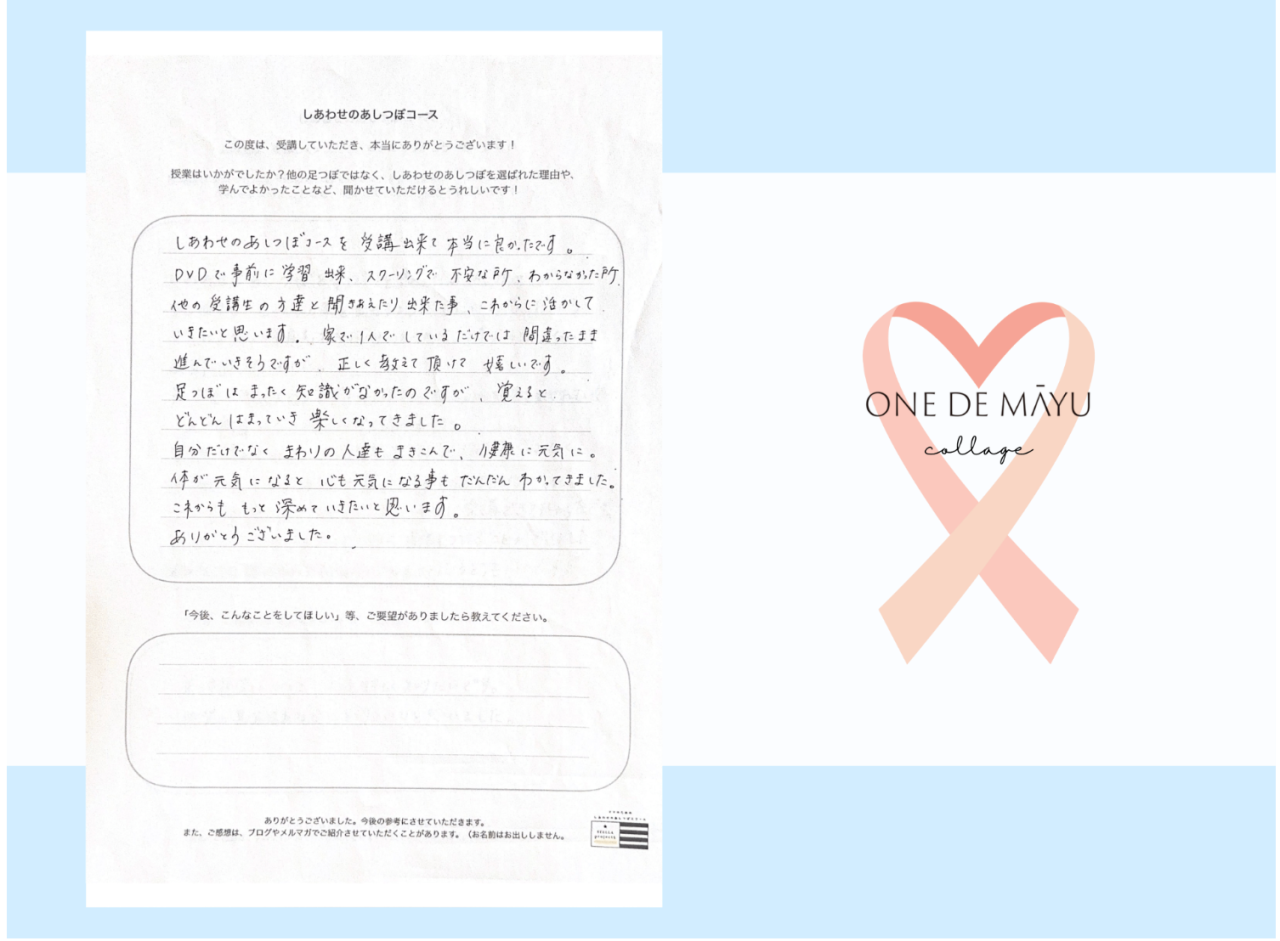 しあわせのあしつぼコース
この度は、受講していただき、本当にありがとうございます！
授業はいかがでしたか？他の足つぼではなく、しあわせのあしつぼを選ばれた理由や、
学んでよかったことなど、聞かせていただけるとうれしいです！
しあわせのあしつぼコースを受講出来て本当に良かったです。
DVDで事前に学習出来、スクーリングで不安な所、わからなかった所
他の受講生の方達と聞きあえたり出来た事、これからに活かして
いきたいと思います。家で1人でしているだけでは間違ったまま
進んでいきそうですが、正しく教えて頂けて嬉しいです。
足つぼはまったく知識がなかったのですが、覚えると
どんどんはまっていき楽しくなってきました。
自分だけでなくまわりの人達もまきこんで、健康に元気に。
体が元気になると心も元気になる事もだんだんわかってきました。
これからももっと深めていきたいと思います。
ありがとうございました。
「今後、こんなことをしてほしい」等、ご要望がありましたら教えてください。
ありがとうございました。今後の参考にさせていただきます。
また、ご感想は、ブログやメルマガでご紹介させていただくことがあります。（お名前はお出ししません。
ONE DE MĀYU
collage